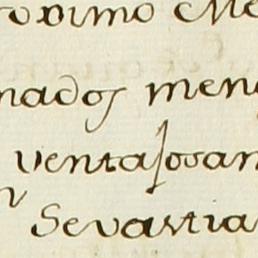 roximo Me
nados men
ventajosam
Sevastia